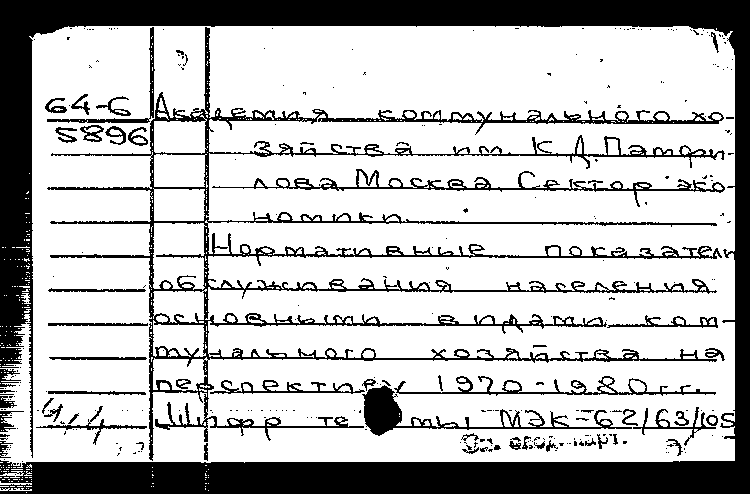 64-6 Академия коммунального хо-
5896 зяйства им. К.Д. Памфи-
лова. Москва. Сектор эко-
номики.
Нормативные показатели
обслуживания населения
основными видами ком-
мунального хозяйства на
перспективу 1970-1980 гг.
Шифр темы МЭК-62/63/105
См. свод. карт.